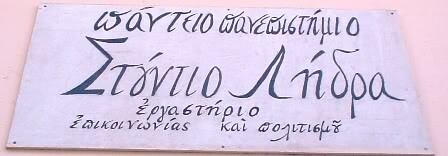 πάντειο πανεπιστήμιο
Στούντιο Λήδρα
ἐργαστήριο
ἐπικοινωνίας καὶ πολιτισμοῦ